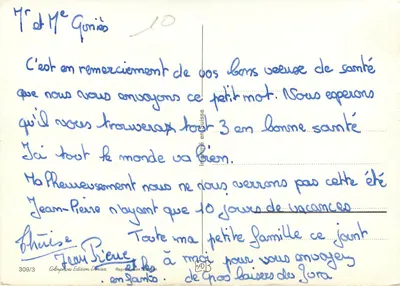 Mr et Me Goriès
10
C'est en remerciement de vos bons voeuse de santé
que nous vous envoyons ce petit mot. Nous esperons
qu'il vous trouverax tout 3 en bonne santé
Ici tout le monde va bien.
Malheureusement nous ne nous verrons pas cette été
Jean-Pierre n'ayant que 10 jours de vacances
Toute ma petite famille ce joint
à moi pour vous envoyer
de gros baisers du Jura
Jean Pierre
et les
enfants.
309/3